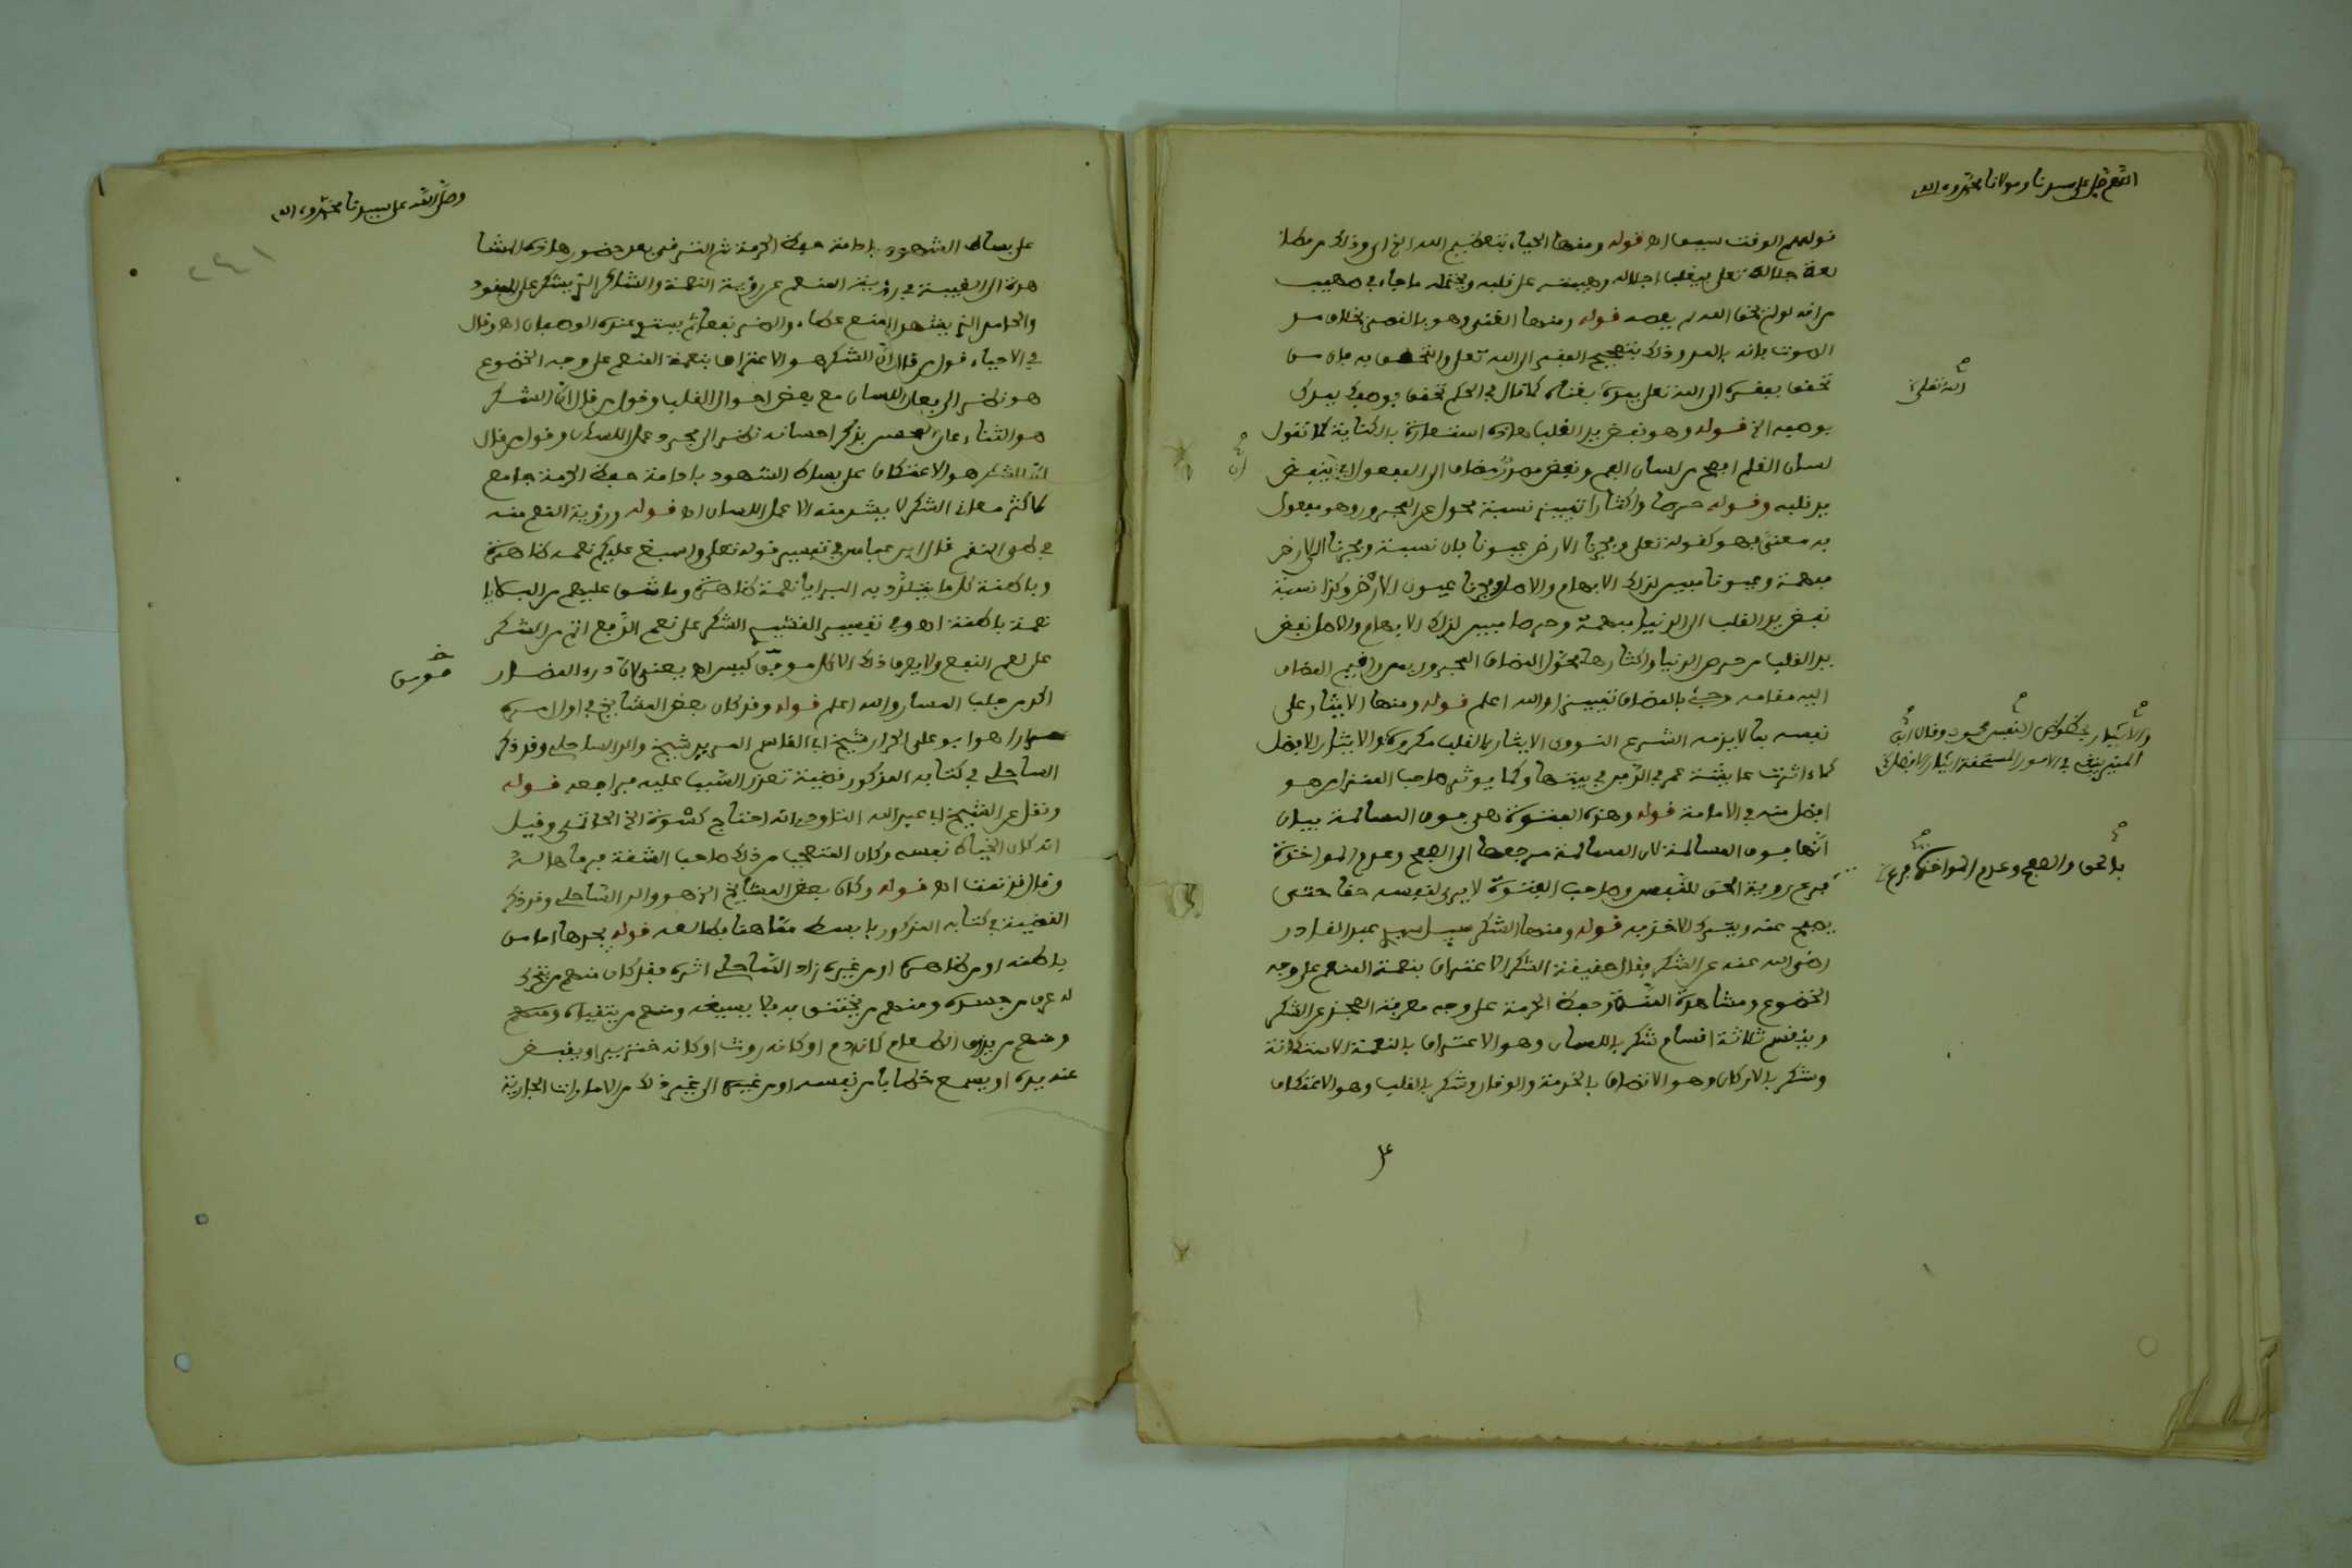 اللهم صل على سيدنا ومولانا محمد وءاله
قولهم الوقت سيف اه قوله ومنها الحياء بتعظيم الله الخ اي وذلك من مطا
لعة جلاله تعلى يغلب اجلاله وهيبته على قلبه ويحتمل ما جاء في صهيب
من انه لو لم يخف الله لم يعصه قوله ومنها الغنى وهو بالقصر بخلاف
الصوت فانه بالمد وذلك بتصحيح الفقر الى الله تعلى والتحقق به فان من
تحقق بفقره الى الله تعلى يمده بغناه كما قال في الحكم تحقق بوصفك يمدك
الله تعلى
بوصفه الخ قوله وهو نفض يد القلب هذه استعارة بالكناية كما تقول
لسان القلم افصح من لسان الفم ونفض مصدر مضاف الى المفعول اي ينفض
يد قلبه وقوله حرصا واكثارا تمييز نسبة محول عن المجرور وهو مفعول
به معنى فهو كقوله تعلى وفجرنا الارض عيونا فان نسبة وفجرنا الى الارض
مبهمة وعيونا مبين لذلك الابهام والاصل وفجرنا عيون الارض وكذا نسبة
نفض يد القلب الى الدنيا مبهمة وحرصا مبين لذلك الابهام والاصل نفض
يد القلب من حرص الدنيا واكثارها فحول المضاف المجرور بمن واقيم المضاف
اليه مقامه وجيء بالمضاف تمييزا والله اعلم قوله ومنها الايثار على
نفسه بما لا يذمه الشرع النووي الايثار بالقرب مكروه والايثار
والايثار بحظوظ النفس محمود وقال ابن
المنير ينبغي في الامور المستحقة ايثار الافضل
كما ءاثرت عايشة عمر في الدفن في بيتها وكما يوثر صاحب المنزل من هو
افضل منه في الامامة قوله وهذه الفتوة هي فوق المسالمة بيان
انها فوق المسالمة لان المسالمة مرجعها الى الصفح وعدم المواخذة
بالحق والصفح وعدم المواخذة فرع
فرع روية الحق للنفس وصاحب الفتوة لا يرى لنفسه حقا حتى
يصفح عنه ويترك الاخذ به قوله ومنها الشكر سيل سيدي عبد القادر
رضي الله عنه عن الشكر فقال حقيقة الشكر الاعتراف بنعمة المنعم على وجه
الخضوع ومشاهدة المنة وحفظ الحرمة على وجه معرفة العجز عن الشكر
وينقسم ثلاثة اقسام شكر باللسان وهو الاعتراف بالنعمة الاستكانة
وشكر بالاركان وهو الاتصاف بالخدمة والوقار وشكر بالقلب وهو الاعتكاف
على
وصلى الله على سيدنا محمد وءاله
٢٤١
على بساط الشهود بادامة حفظ الحرمة ثم الترقي بعد حضور هذه المشا
هدة الى الغيبة في روية المنعم عن روية النعمة والشاكر الذي يشكر على الموجود
والحامد الذي يشهد المنع عطاء والضر نفعا ثم يستوي عنده الوصفان اه وقال
في الاحياء قول من قال ان الشكر هو الاعتراف بنعمة المنعم على وجه الخضوع
هو نظر الى فعل اللسان مع بعض احوال القلب وقول من قال ان الشكر
هو الثناء على المحسن بذكر احسانه نظر الى مجرد عمل اللسان وقول من قال
ان الشكر هو الاعتكاف على بساط الشهود بادامة حفظ الحرمة جامع
لاكثر معاني الشكر لا يشذ منه الا عمل اللسان اه قوله وروية النعم منه
في طي النقم قال ابن عباس في تفسير قوله تعلى واسبغ عليكم نعمه ظاهرة
وباطنة كل ما يتلذذ به البرايا نعمة ظاهرة وما شق عليهم من البلايا
نعمة باطنة اه وفي تفسير القشيري الشكر على نعم الدفع اتم من الشكر
على نعم النفع ولا يعرف ذلك الا كل موفق كيس اه يعني لان درء المضار
اكد من جلب المسار والله اعلم قوله وقد كان بعض المشايخ في اول امره
هو ابو علي الخراز شيخ ابي القاسم المريد شيخ والد الساحلي وقد ذكر
الساحلي في كتابه المذكور قضية تعذر السبب عليه فراجعه قوله
ونقل عن الشيخ ابي عبد الله التاودي انه احتاج كسوة الخ الحاتمي وقيل
انه كان الخياط نفسه وكان المتعجب من ذلك صاحب الشقة
وقال قد تمت اه قوله وكان بعض المشايخ الخ هو والد الساحلي وقد ذكر
القضية في كتابه المذكور بابسط مما هنا فطالعه قوله يجدها اما من
باطنه او من ظاهره او من غيره زاد الساحلي اثره فقد كان منهم من يتحرك
له عرق من جسده ومنهم من يختنق به فلا يسيغه ومنهم من يتقيأه ومنهم
ومنهم من يرى الطعام كانه دم او كانه روث او كانه خنزير او يقبض
عنه يده او يسمع خطابا من نفسه او من غيره الى غير ذلك من الامارات الجارية